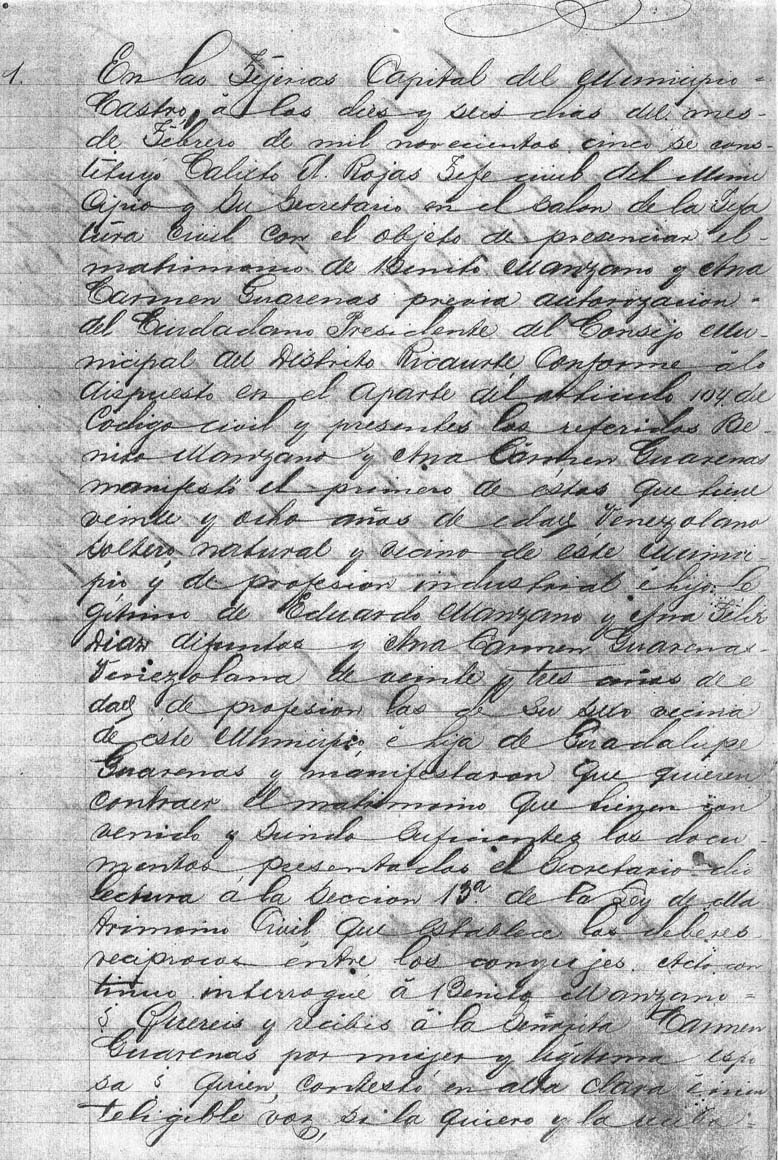 1. En las Tejerias Capital del Municipio
Castro, á los dies y seis dias del mes
de Febrero de mil novecientos cinco se cons-
tituyó Calisto A. Rojas Jefe civil del Muni
cipio y Su Secretario en el Salon de la Jefa
tura Civil con el objeto de presenciar el
matrimonio de Benito Manzano y Ana
Carmen Guarenas previa autorizacion
del Ciudadano Presidente del Consejo Mu-
nicipal del Distrito Ricaurte Conforme álo
dispuesto en el aparte del articulo 104 del
Codigo civil y presentes los referidos Be-
nito Manzano y Ana Cármen Guarenas
manifestó el primero de éstos que tiene
veinte y ocho años de edad Venezolano
soltero, natural y vecino de éste Munici-
pio y de profesion industrial é hijo le
gitimo de Eduardo Manzano y Ana Felix
Diaz difuntos y Ana Carmen Guarenas
Venezolana de veinte y tres años de e
dad de profesion las de Su sexo vecina
de éste Municipio é hija de Guadalupe
Guarenas y manifestaron que quieren
contraer el matrimonio que tienen con
venido y Siendo Suficientes los docu-
mentos presentados el Secretario dió
lectura á la Seccion 13ª de la Ley de Ma
trimonio Civil que establece los deberes
reciprocos entre los conyujes. Acto con
tinuo interrogué á Benito Manzano
¿ Quereis y recibis á la Señorita Carmen
Guarenas por mujer y legitima espo
sa ? Quien, contestó en alta clara é in
teligible voz, si la quiero y la recibo